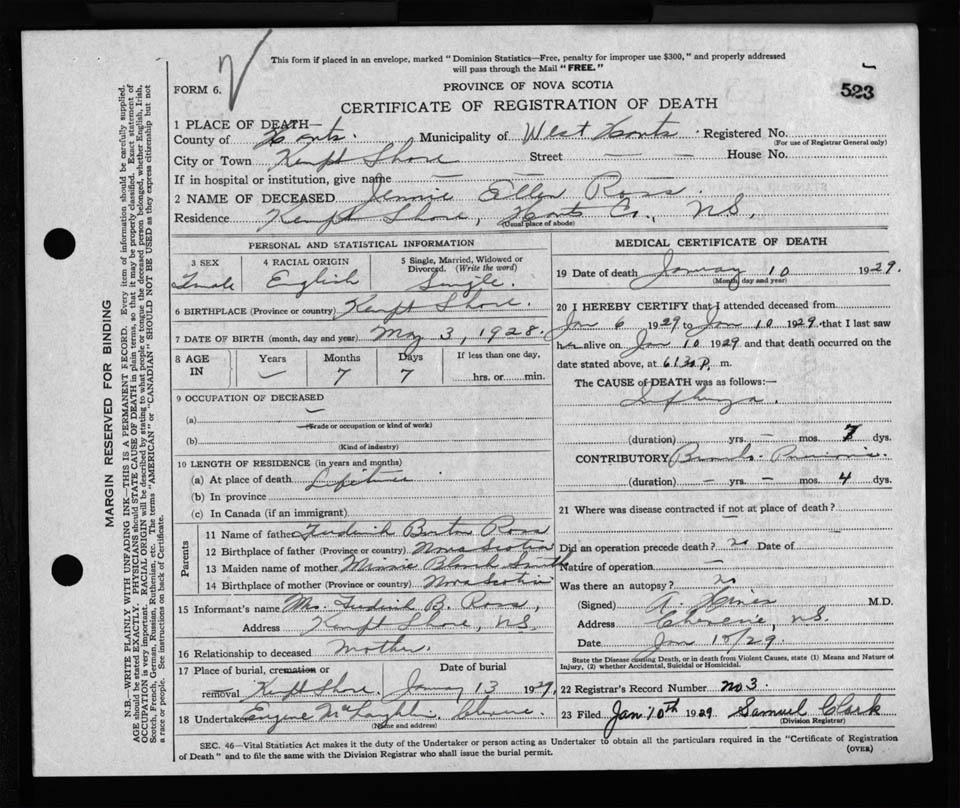 This form if placed in an envelope, marked "Dominion Statistics—Free, penalty for improper use $300," and properly addressed
will pass through the Mail "FREE."
FORM 6.
PROVINCE OF NOVA SCOTIA
523
CERTIFICATE OF REGISTRATION OF DEATH
1 PLACE OF DEATH—
County of Hants. Municipality of West Hants Registered No.
(For use of Registrar General only)
City or Town Kempt Shore Street — — House No.
If in hospital or institution, give name — —
2 NAME OF DECEASED Jennie Ellen Ross.
Residence Kempt Shore, Hants Co., N.S.
(Usual place of abode)
PERSONAL AND STATISTICAL INFORMATION
3 SEX 4 RACIAL ORIGIN 5 Single, Married, Widowed or
Divorced. (Write the word)
Female English Single.
6 BIRTHPLACE (Province or country) Kempt Shore.
7 DATE OF BIRTH (month, day and year) May 3, 1928.
8 AGE IN Years Months Days If less than one day,
— 7 7 hrs. or min.
9 OCCUPATION OF DECEASED
(a) —
(Trade or occupation or kind of work)
(b)
(Kind of industry)
10 LENGTH OF RESIDENCE (in years and months)
(a) At place of death Lifetime
(b) In province
(c) In Canada (if an immigrant)
Parents
11 Name of father Fredrick Burton Ross
12 Birthplace of father (Province or country) Nova Scotia
13 Maiden name of mother Minnie Blanch Smith
14 Birthplace of mother (Province or country) Nova Scotia
15 Informant's name Mrs. Fredrick B. Ross,
Address Kempt Shore, N.S.
16 Relationship to deceased Mother.
17 Place of burial, cremation or Date of burial
removal Kempt Shore. January 13 1929.
18 Undertaker Eugene McLaughlin
(Name and address)
MEDICAL CERTIFICATE OF DEATH
19 Date of death January 10 1929.
(Month, day and year)
20 I HEREBY CERTIFY that I attended deceased from
Jan 6 1929 to Jan 10 1929 that I last saw
h alive on Jan 10 1929 and that death occurred on the
date stated above, at m.
The CAUSE of DEATH was as follows:—
Influenza.
(duration) yrs. — mos. 7 dys.
CONTRIBUTORY Broncho Pneumonia
(duration) — yrs. — mos. 4 dys.
21 Where was disease contracted if not at place of death?
—
Did an operation precede death? no Date of
Nature of operation —
Was there an autopsy? no
(Signed) M.D.
Address Cheverie, N.S.
Date Jan 10/29.
State the Disease causing Death, or in death from Violent Causes, state (1) Means and Nature of
Injury, (2) whether Accidental, Suicidal or Homicidal.
22 Registrar's Record Number No 3.
23 Filed Jan. 10th 1929 Samuel Clark
(Division Registrar)
SEC. 46—Vital Statistics Act makes it the duty of the Undertaker or person acting as Undertaker to obtain all the particulars required in the "Certificate of Registration
of Death" and to file the same with the Division Registrar who shall issue the burial permit.
(OVER)
MARGIN RESERVED FOR BINDING
N.B.—WRITE PLAINLY WITH UNFADING INK—THIS IS A PERMANENT RECORD. Every item of information should be carefully supplied.
AGE should be stated EXACTLY. PHYSICIANS should STATE CAUSE OF DEATH in plain terms, so that it may be properly classified. Exact statement of
OCCUPATION is very important. RACIAL ORIGIN will be described by stating to what people or tongue the deceased person belonged, whether English, Irish,
Scotch, French, German, Russian, Ruthenian, etc. The terms "AMERICAN" or "CANADIAN" SHOULD NOT BE USED as they express citizenship but not
a race or people. See instructions on back of Certificate.